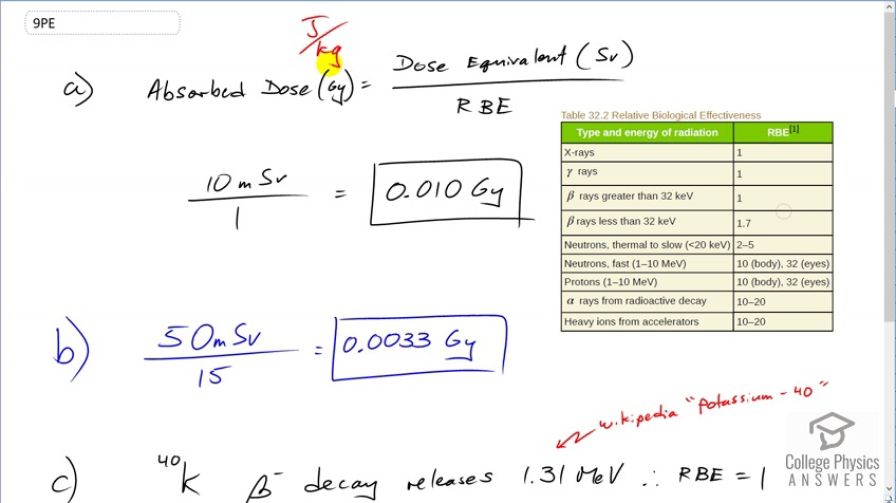 9PE
J/kg
a) Absorbed Dose (Gy) = Dose Equivalent (Sv)
RBE
Table 32.2 Relative Biological Effectiveness
Type and energy of radiation RBE[1]
X-rays 1
γ rays 1
β rays greater than 32 keV 1
β rays less than 32 keV 1.7
Neutrons, thermal to slow (<20 keV) 2–5
Neutrons, fast (1–10 MeV) 10 (body), 32 (eyes)
Protons (1–10 MeV) 10 (body), 32 (eyes)
α rays from radioactive decay 10–20
Heavy ions from accelerators 10–20
10 m Sv
1
= 0.010 Gy
b) 50 m Sv
15
= 0.0033 Gy
wikipedia "Potassium - 40"
c) ⁴⁰K β⁻ decay releases 1.31 MeV ∴ RBE = 1
College Physics
ANSWERS